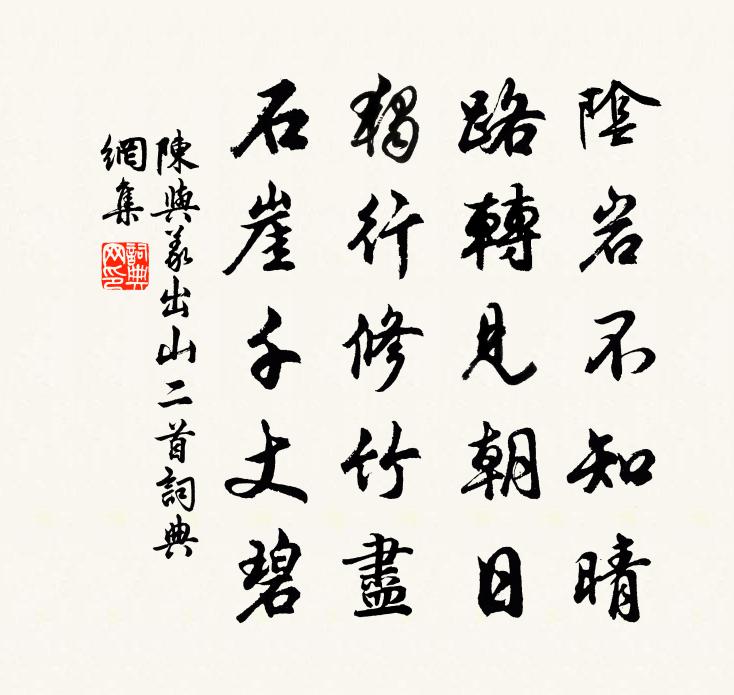 陰岩不知晴
路轉見朝日
獨行修竹盡
石崖千丈碧
陳與義出山二首詞典
網集
詞典
网印